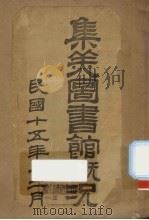 集美圖書館概況
民國十五年十二月